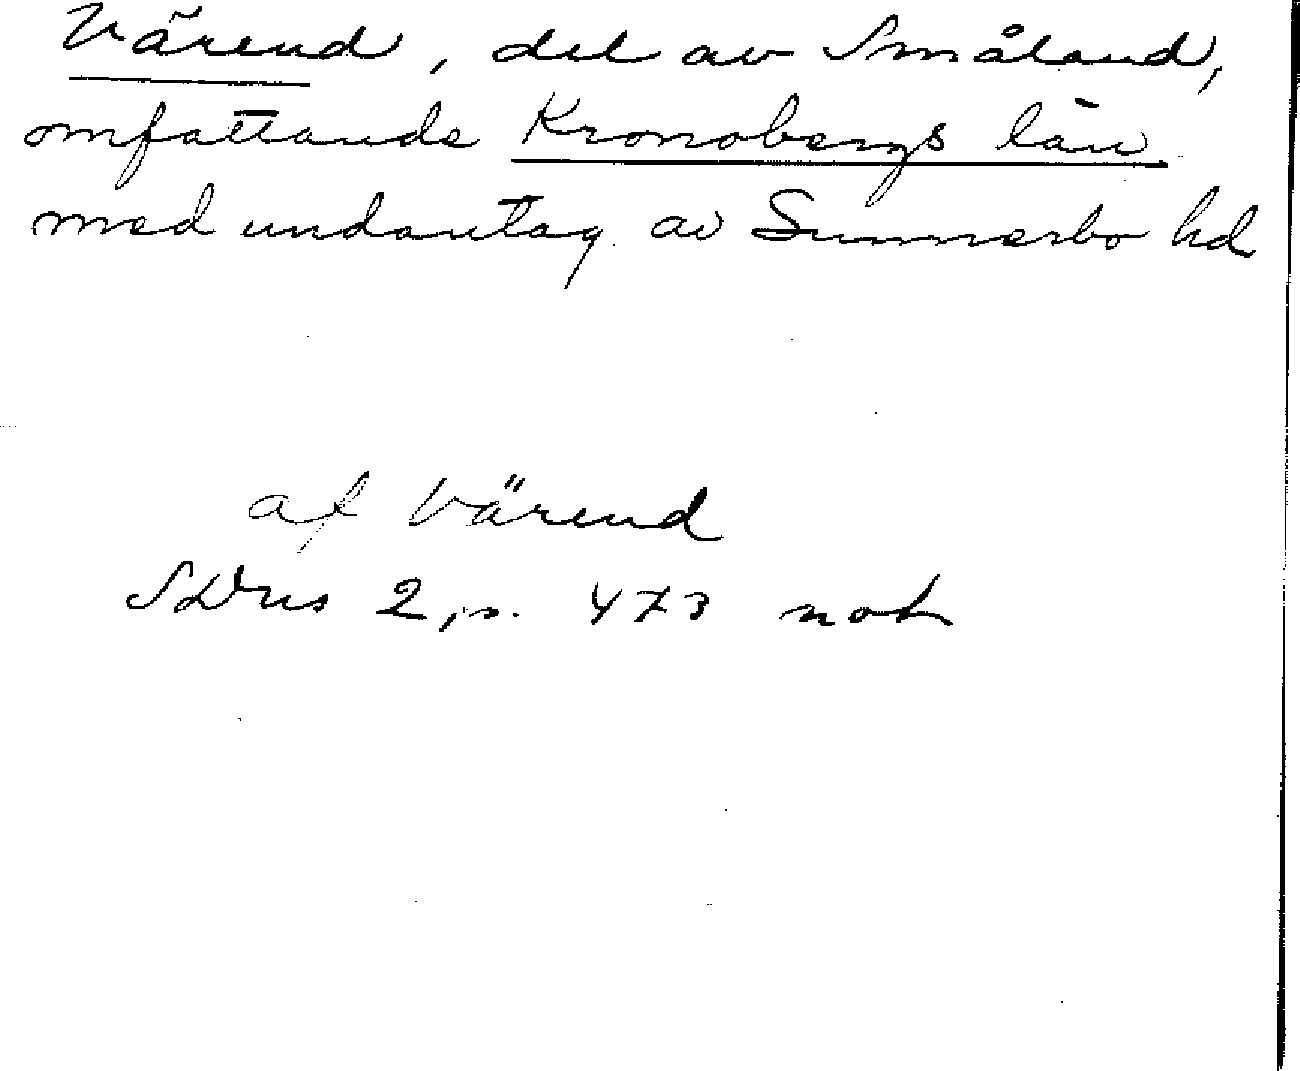 Värend, del av Småland,
omfattande Kronobergs län
med undantag av Sunnerbo hd
af Värend
SDns 2, s. 473 not